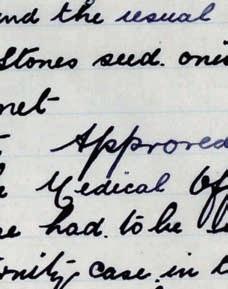 and the usual
Stones seed. oni
net
Approved
Medical Off
e had. to be
rnity case in t